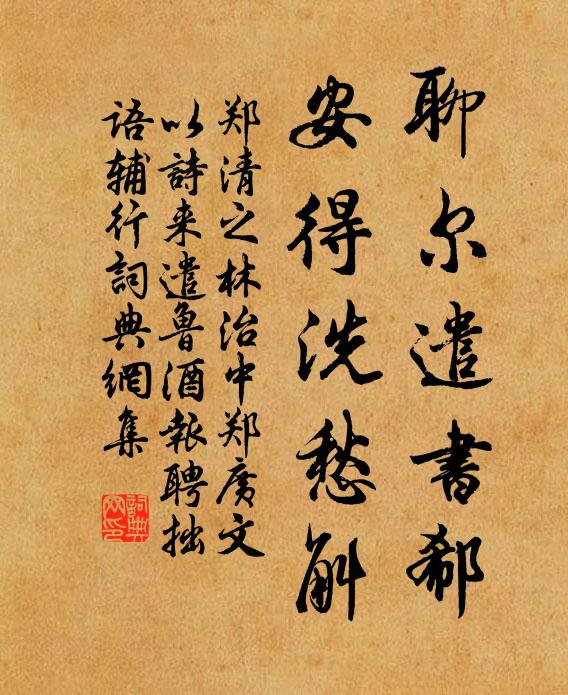 聊尔遣书郗
安得洗愁斛
郑清之林治中郑广文
以詩来遣鲁酒報聘拙
语辅行詞典網集
詞典网印